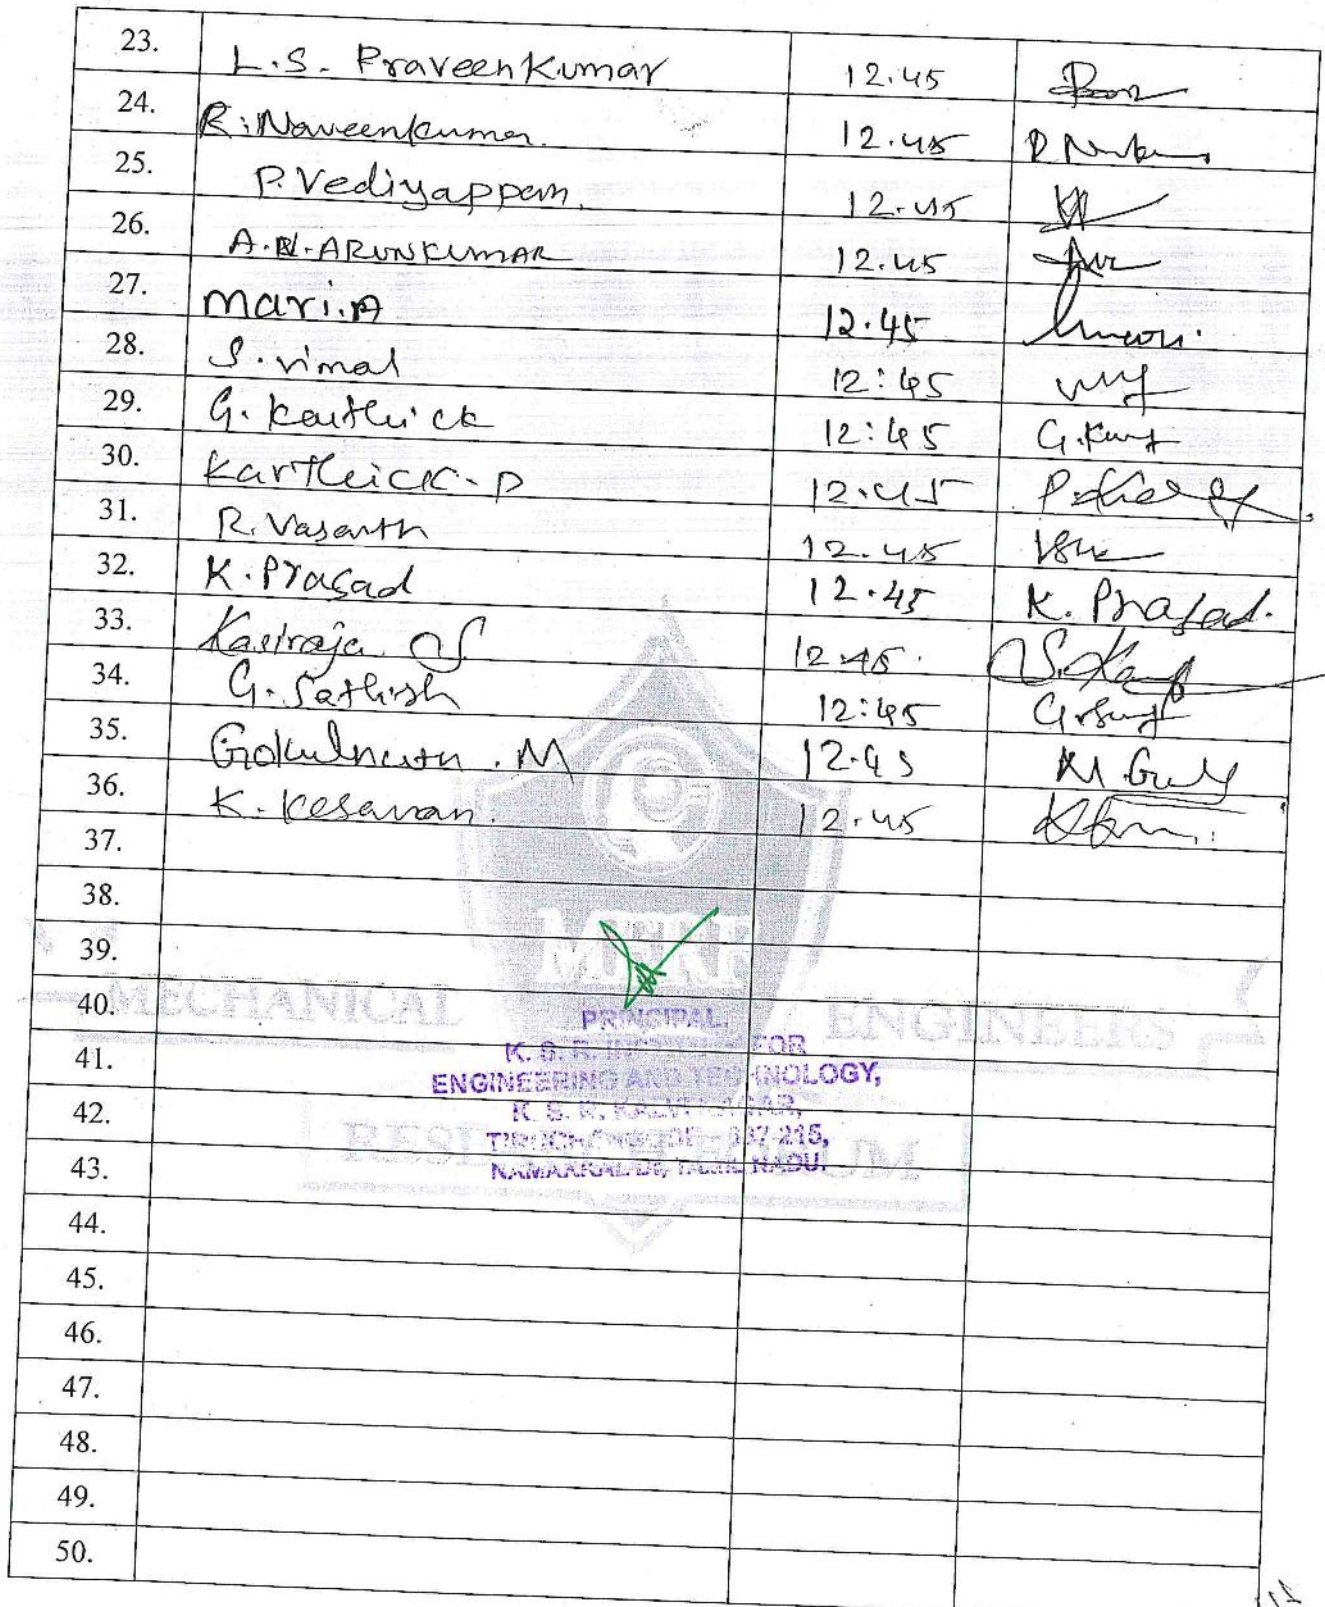 23. L.S. PraveenKumar 12.45
24. R. Naveenkumar. 12.45
25. P. Vediyappan. 12.45
26. A.N. ARUNKUMAR 12.45
27. Mari.A 12.45
28. S. Vimal 12:45
29. G. Karthick 12:45 G.
30. Karthick. P 12.45
31. R. Vasanth 12.45
32. K. Prasad 12.45 K. Prasad.
33. Kasiraja S 12.45.
34. G. Sathish 12:45
35. Gokulnath. M 12.45
36. K. Kesavan. 12.45
37.
38.
39.
MERF
40.
MECHANICAL ENGINEERS
PRINCIPAL,
41. K. S. R. INSTITUTE FOR
ENGINEERING AND TECHNOLOGY,
42. K. S. R. KALVI NAGAR,
RESEARCH FORUM
TIRUCHENGODE - 637 215,
43. NAMAKKAL Dt, TAMIL NADU.
44.
45.
46.
47.
48.
49.
50.